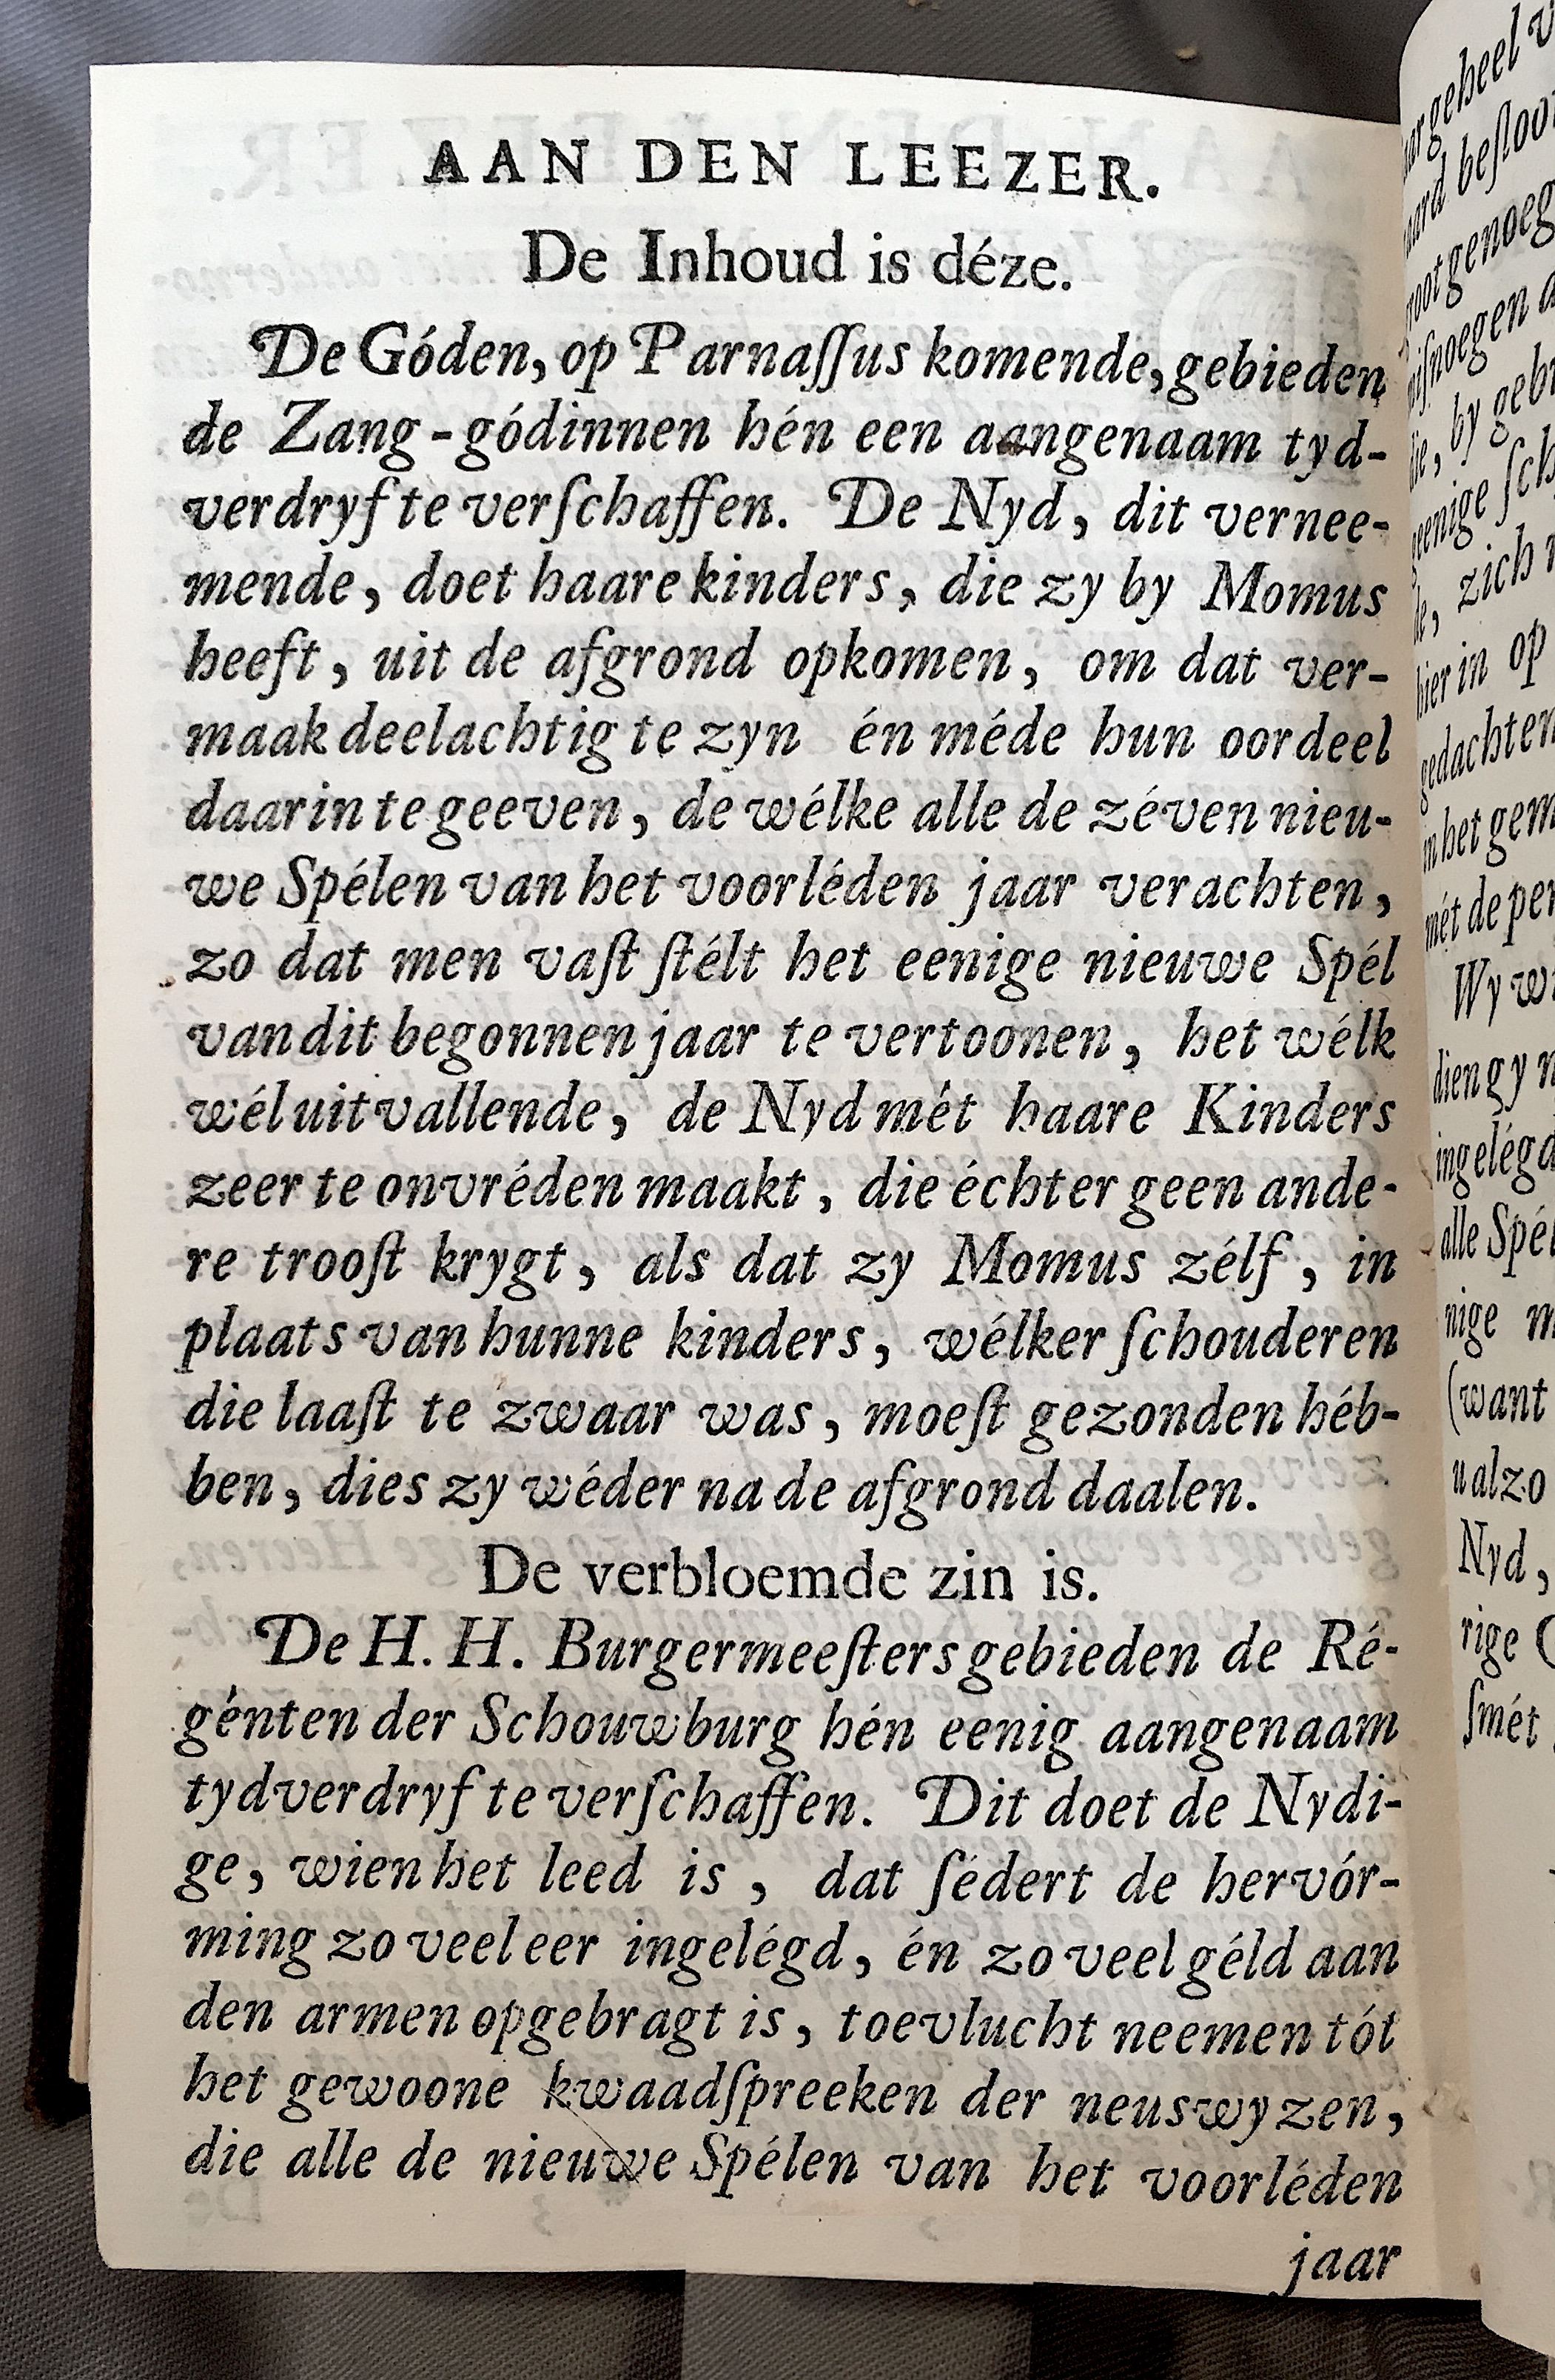 AAN DEN LEEZER.
De Inhoud is déze.
De Góden, op Parnaſſus komende, gebieden
de Zang-gódinnen hén een aangenaam tyd-
verdryf te verſchaffen. De Nyd, dit vernee-
mende, doet haare kinders, die zy by Momus
heeft, uit de afgrond opkomen, om dat ver-
maak deelachtig te zyn én méde hun oordeel
daarin te geeven, de wélke alle de zéven nieu-
we Spélen van het voorléden jaar verachten,
zo dat men vaſt ſtélt het eenige nieuwe Spél
van dit begonnen jaar te vertoonen, het wélk
wél uitvallende, de Nyd mét haare Kinders
zeer te onvréden maakt, die échter geen ande-
re trooſt krygt, als dat zy Momus zélf, in
plaats van hunne kinders, wélker ſchouderen
die laaſt te zwaar was, moeſt gezonden héb-
ben, dies zy wéder na de afgrond daalen.
De verbloemde zin is.
De H. H. Burgermeeſters gebieden de Ré-
génten der Schouwburg hén eenig aangenaam
tydverdryf te verſchaffen. Dit doet de Nydi-
ge, wien het leed is, dat ſédert de hervór-
ming zo veel eer ingelégd, én zo veel géld aan
den armen opgebragt is, toevlucht neemen tót
het gewoone kwaadſpreeken der neuswyzen,
die alle de nieuwe Spélen van het voorléden
jaar
geheel
beſloot
genoeg
by gebr
zich
hier in op
gedachten
het gem
mét de per
Wy
dien gy
ingelégd
alle Spél
nige
(want
u alzo
Nyd,
rige
ſmét